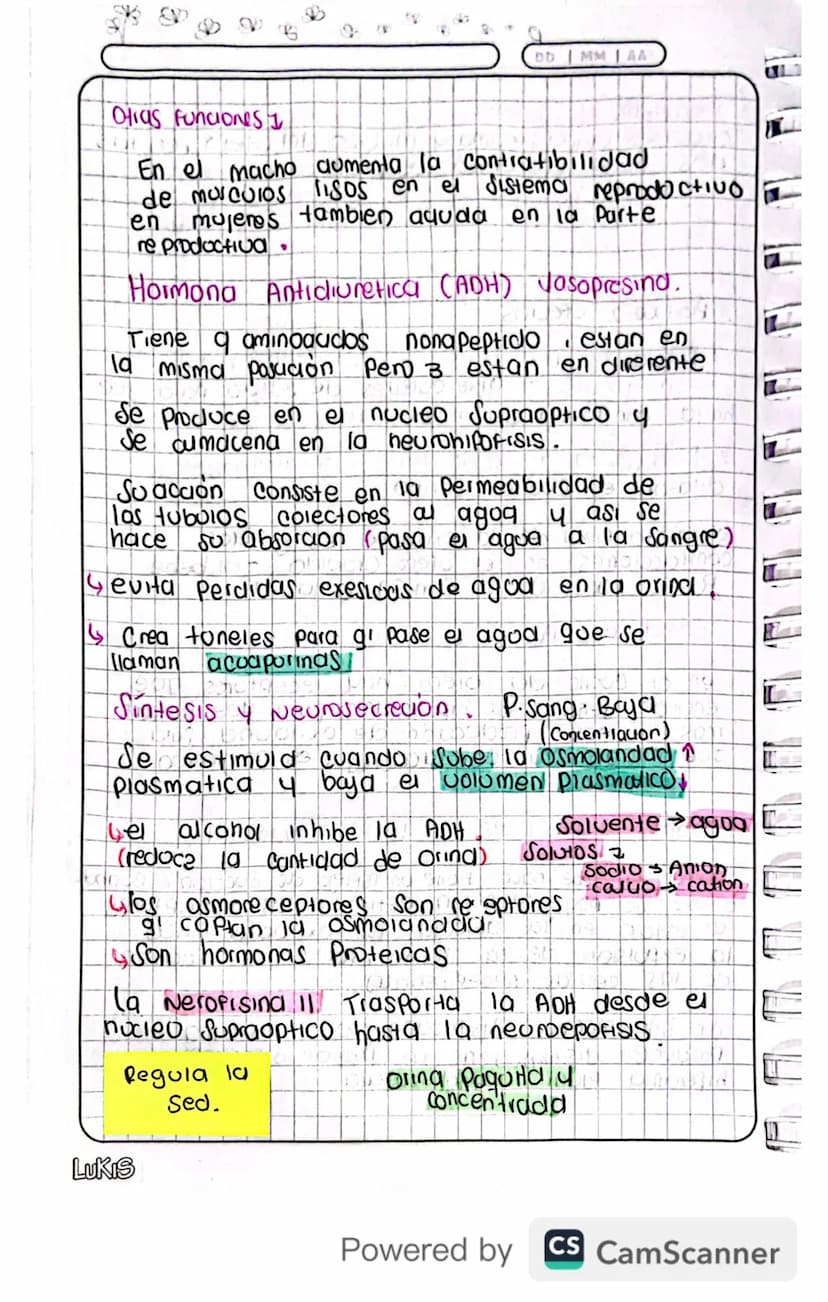 DD | MM | AA
Otras Funciones
En el macho aumenta la contratibilidad
de musculos lisos en el sistema reproductivo
en mujeres tambien ayuda en la parte
reproductiva.
Hormona Antidiuretica (ADH) Vasopresina.
Tiene 9 aminoacidos nonapeptido, estan en
la misma posición Pero 3 estan en diferente
Se Produce en el nucleo Supraoptico y
Se almacena en la neurohipofisis.
Su acción consiste en la Permeabilidad de
los tubulos colectores al agua y asi se
hace su absorcion (pasa el agua a la sangre)
↳ evita perdidas exesicas de agua en la orina.
↳ Crea tuneles para q' pase el agua que se
llaman acuaporinas
Síntesis y Neurosecreción. P. sang. Baja
(Concentración)
Se estimula cuando sube la osmolaridad ↑
plasmatica y baja el volumen plasmatico ↓
↳ el alcohol inhibe la ADH. Solvente → agua
(reduce la cantidad de orina) Solutos
Sodio → Anion
calcio → cation
↳ los osmoreceptores son receptores
q' captan la osmolaridad
↳ Son hormonas Proteicas
la Nerofisina II Trasporta la ADH desde el
núcleo supraoptico hasta la neuroepofisis.
Regula la
Sed.
Orina Poquita y
Concentrada
LuKiS
Powered by CS CamScanner